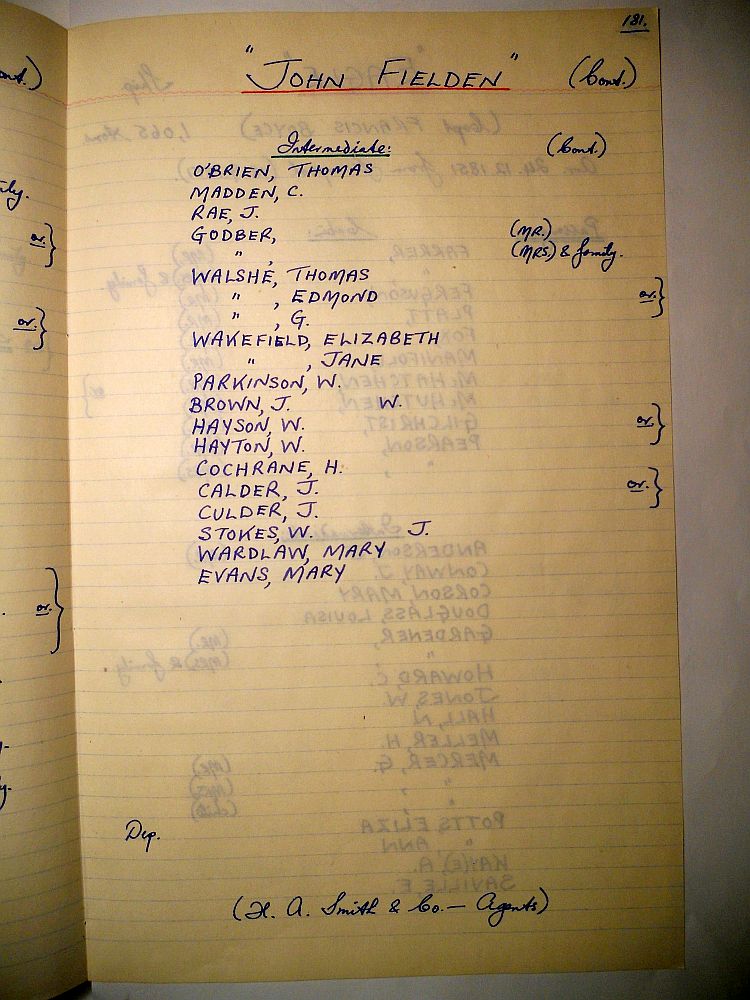 181.
"JOHN FIELDEN" (Cont.)
Intermediate: (Cont.)
O'BRIEN, THOMAS
MADDEN, C.
RAE, J.
GODBER, (MR.)
" , (MRS.) & family.
WALSHE, THOMAS
" , EDMOND or. }
" , G.
WAKEFIELD, ELIZABETH
" , JANE
PARKINSON, W.
BROWN, J. W.
HAYSON, W. or. }
HAYTON, W.
COCHRANE, H.
CALDER, J. or. }
CULDER, J.
STOKES, W. J.
WARDLAW, MARY
EVANS, MARY
Dep.
(H. A. Smith & Co. — Agents)